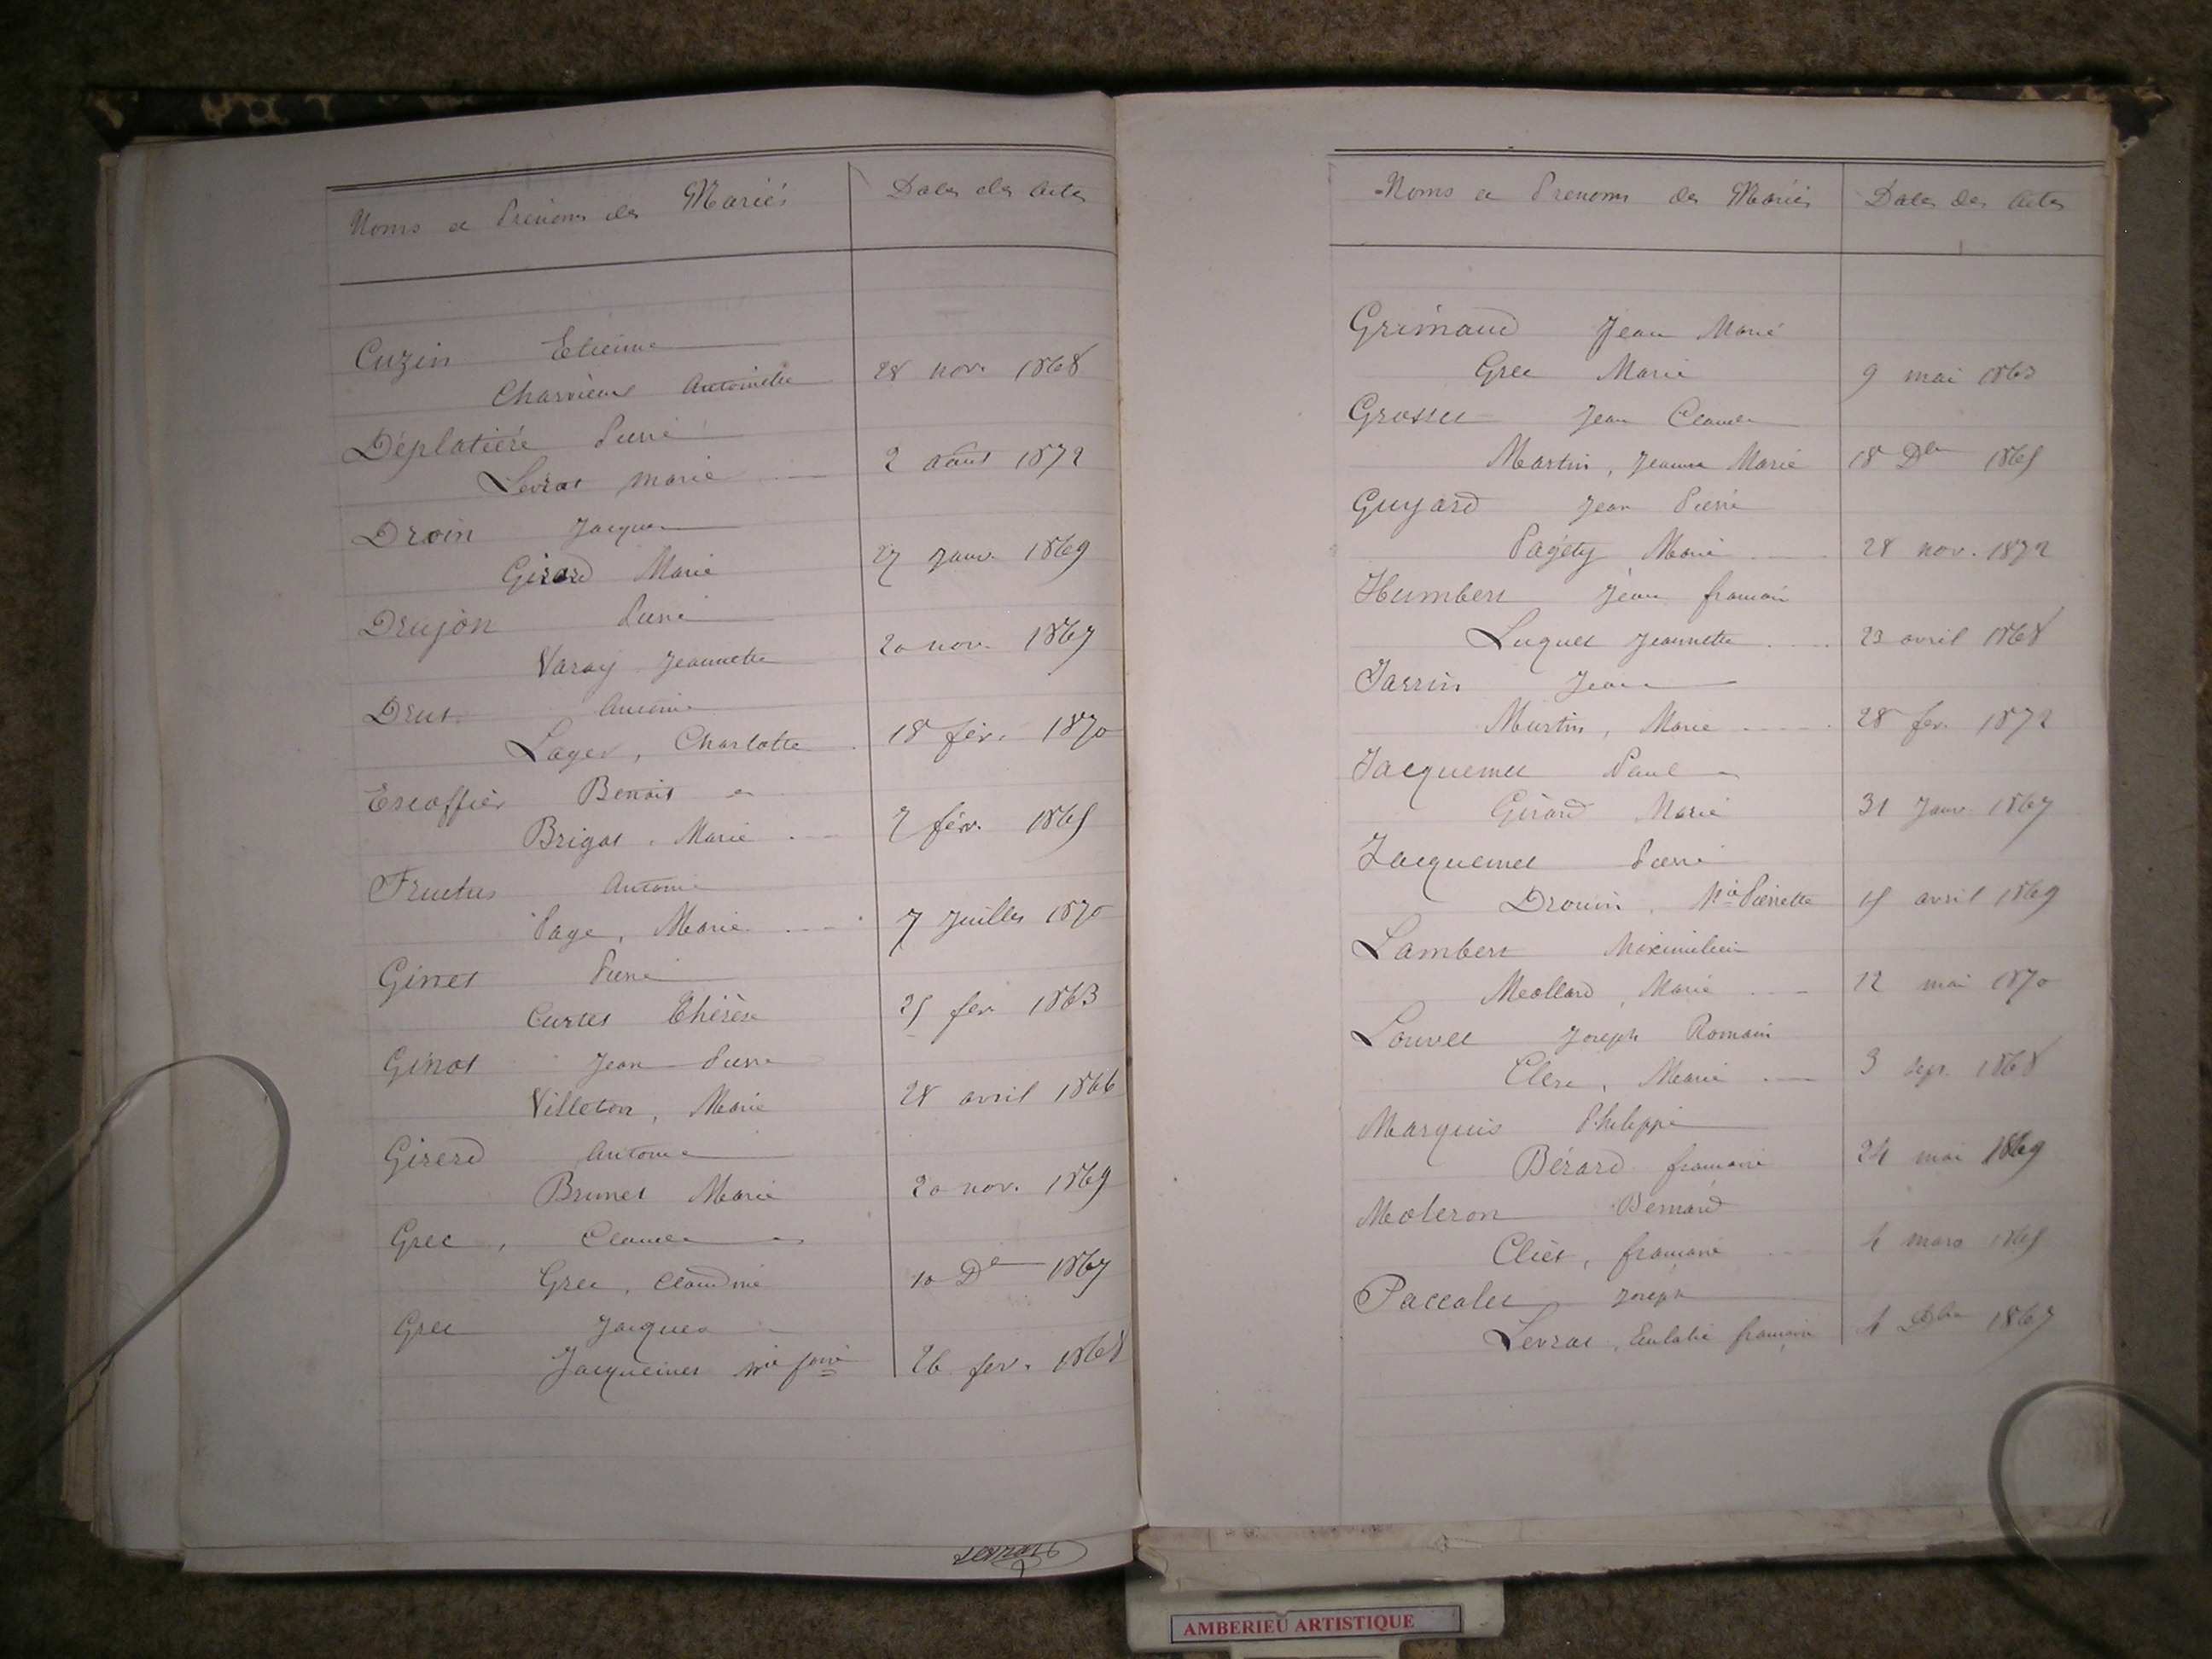 Noms et Prénoms des Mariés Dates des Actes
Cuzin Etienne
Charvieux Antoinette 28 nov. 1868
Déplatière Pierre
Levrat Marie 2 août 1872
Droin Jacques
Girard Marie 27 Janv. 1869
Drujon Pierre
Varay Jeannette 20 nov. 1867
Drut Antoine
Lager, Charlotte 18 fév. 1870
Escoffier Benoit
Brigat, Marie 2 fév. 1865
Fructus Antoine
Page, Marie 7 Juillet 1870
Ginet Pierre
Curtet Thérèse 25 fev 1863
Ginot Jean Pierre
Villeton, Marie 28 avril 1866
Girerd Antoine
Brunet Marie 20 nov. 1869
Grec, Claude
Grec, Claudine 10 Dbre 1867
Grec Jacques
Jacquemet Mie 26 fev. 1868
Noms et Prénoms des Mariés Dates des Actes
Grimaud Jean Marie
Grec Marie 9 mai 1863
Grosset Jean Claude
Martin, Jeanne Marie 18 Dbre 1865
Guyard Jean Pierre
Pagéty Marie 28 nov. 1872
Humbert Jean françois
Luquet Jeannette 23 avril 1868
Jarrin Jean
Martin, Marie 28 fev. 1872
Jacquemet Paul
Girard Marie 31 Janv. 1867
Jacquemet Pierre
Drouin, Mie Pierrette 15 avril 1869
Lambert Maximilien
Mollard, Marie 12 mai 1870
Louvet Joseph Romain
Clerc, Marie 3 sept. 1868
Marquis Philippe
Bérard françoise 24 mai 1869
Moleron Bernard
Cliet, françoise 4 mars 1865
Paccalet Joseph
Levrat, Eulalie françoise 4 Dbre 1867
AMBERIEU ARTISTIQUE